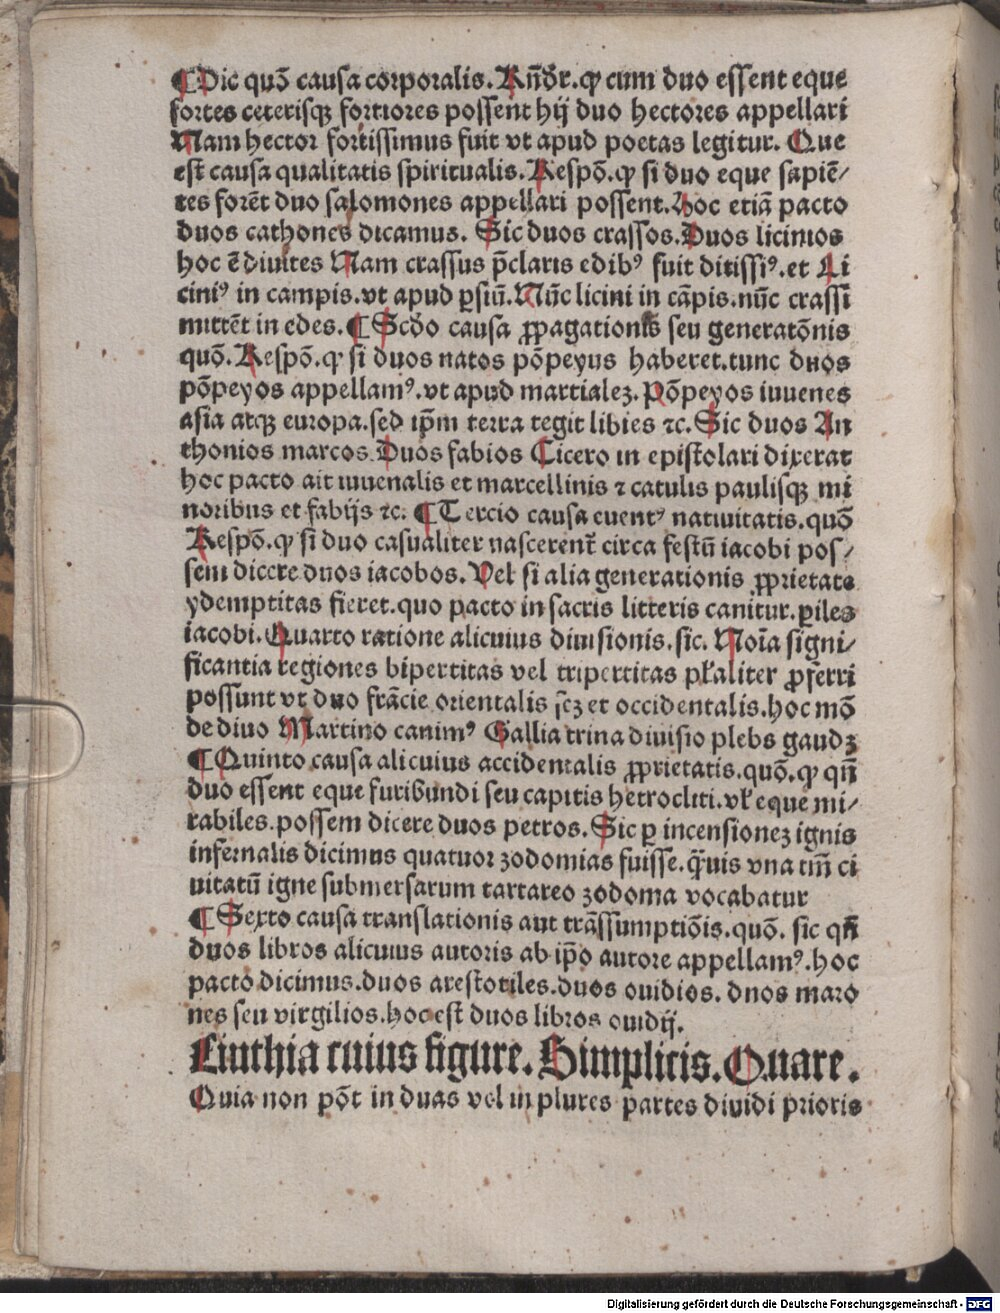 ¶Dic quō causa corporalis. Rn̄dr̄. ꝙ cum duo essent eque
fortes ceterisqꝫ fortiores possent hij duo hectores appellari
Nam hector fortissimus fuit vt apud poetas legitur. Que
est causa qualitatis spiritualis. Respō. ꝙ si duo eque sapiē/
tes forēt duo salomones appellari possent. hoc etiā pacto
duos cathones dicamus. Sic duos crassos. Duos licinios
hoc ē diuites Nam crassus p̄claris edibꝰ fuit ditissiꝰ. et Li
ciniꝰ in campis. vt apud ꝑsiū. Nūc licini in cāpis. nūc crassi
mittēt in edes. ¶Scd̄o causa ꝓpagationis seu generatōnis
quō. Respō. ꝙ si duos natos pōpeyus haberet. tunc duos
pōpeyos appellamꝰ. vt apud martialeꝫ. Pōpeyos iuuenes
asia atqꝫ europa. sed ip̄m terra tegit libies ⁊c. Sic duos An
thonios marcos. Duos fabios Cicero in epistolari dixerat
hoc pacto ait iuuenalis et marcellinis ⁊ catulis paulisqꝫ mi
noribus et fabijs ⁊c. ¶Tercio causa euentꝰ natiuitatis. quō
Respō. ꝙ si duo casualiter nascerent̄ circa festū iacobi pos/
sem dicere duos iacobos. Vel si alia generationis ꝓprietate
ydemptitas fieret. quo pacto in sacris litteris canitur. ꝑiles
iacobi. Quarto ratione alicuius diuisionis. sic. Noīa signi/
ficantia regiones bipertitas vel tripertitas pl̄aliter ꝓferri
possunt vt duo frācie orientalis scꝫ et occidentalis. hoc mō
de diuo Martino canimꝰ Gallia trina diuisio plebs gaudꝫ
¶Quinto causa alicuius accidentalis ꝓprietatis. quō. ꝙ qn̄
duo essent eque furibundi seu capitis hetrocliti. vl̄ eque mi/
rabiles. possem dicere duos petros. Sic ꝑ incensioneꝫ ignis
infernalis dicimus quatuor zodomias fuisse. q̄uis vna tm̄ ci
uitatū igne submersarum tartareo zodoma vocabatur
¶Sexto causa translationis aut trāssumptiōis. quō. sic qn̄
duos libros alicuius autoris ab ip̄o autore appellamꝰ. hoc
pacto dicimus. duos arestotiles. duos ouidios. duos maro
nes seu virgilios. hoc est duos libros ouidij.
Cinthia cuius figure. Simplicis. Quare.
Quia non pōt in duas vel in plures partes diuidi prioris
Digitalisierung gefördert durch die Deutsche Forschungsgemeinschaft - DFG